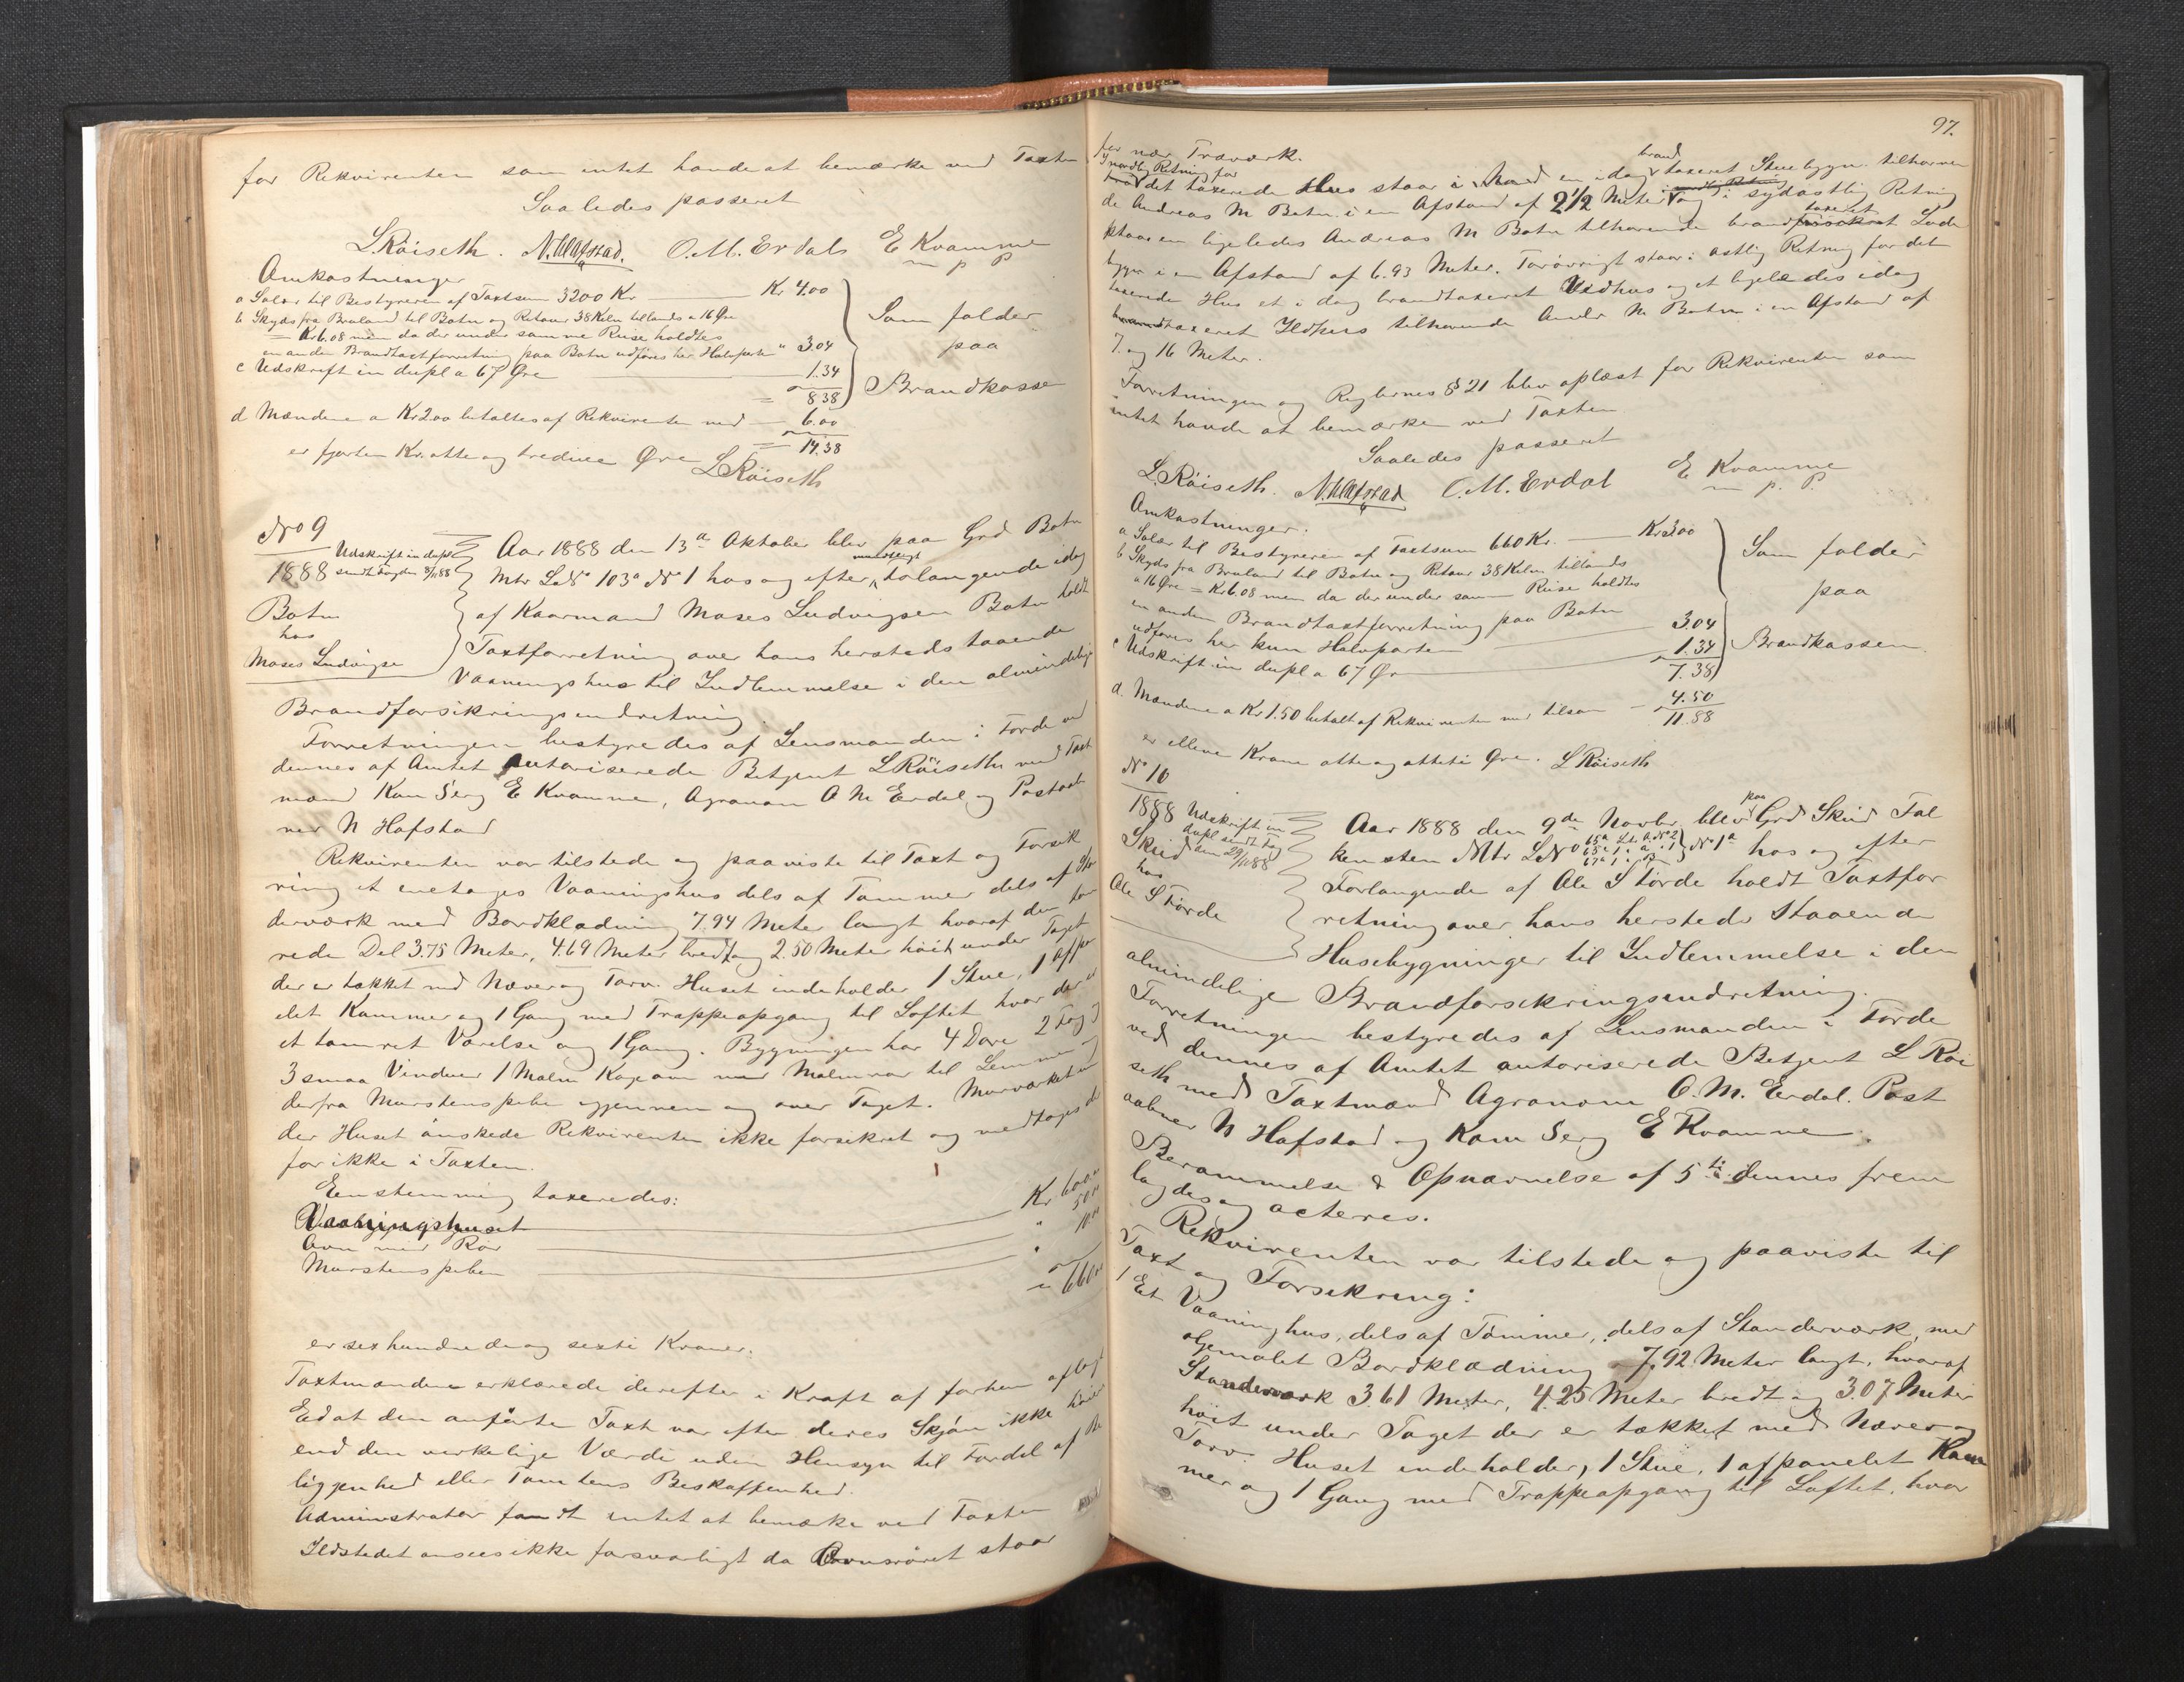 for Rekvirenten som intet havde at bemærke ved Taxten
Saaledes passeret
L Röiseth. N. Hafstad. O. M. Erdals E Kvamme
m p P
Omkostninger
a Salær til Bestyreren af Taxtsum 3200 Kr Kr 4.00
b Skyds fra Bruland til Botn og Retour 38 Kilm tillands a 16 Øre
= Kr 6.08 men da der under samme Reise holdtes
en anden Brandtaxtforretning paa Botn udføres her Halvparten " 3.04
c Udskrift in dupl a 67 Øre 1.34
= 8.38
Som falder
paa
Brandkasse
d Mændene a Kr 2.00 betaltes af Rekvirenten med 6.00
= 14.38
er fjorten Kr. otte og tredive Øre L Röiseth
No 9
1888
Udskrift in dupl
sendt Fogden 8/11 88
Botn
hos
Moses Ludvigse
Aar 1888 den 13de Oktober blev paa Grd Botn
Mtr L No 103a No 1 hos og efter mundtligt Forlangende idag
af Kaarmand Moses Ludvigsen Botn holdt
Taxtforretning over hans hersteds staaende
Vaaningshus til Indlemmelse i den almindelige
Brandforsikringsindretning.
Forretningen bestyredes af Lensmanden i Førde ved
dennes af Amtet autoriserede Betjent L Röiseth med Taxt
mænd Kom Serg E Kvamme, Agronom O M Erdal og Postaab
ner N Hafstad
Rekvirenten var tilstede og paaviste til Taxt og Forsik
ring et enetages Vaaningshus dels af Tømmer dels af Sten
derværk med Bordklædning 7.94 Meter langt hvoraf den tøm
rede Del 3.75 Meter, 4.69 Meter bredt og 2.50 Meter høit under Taget
der er tækket med Næver og Torv. Huset indeholder 1 Stue, 1 afpa
elet Kammer og 1 Gang med Trappeopgang til Loftet hvor der er
et tømret Værelse og 1 Gang. Bygningen har 4 Døre 2 Fag og
3 smaa Vinduer 1 Malm Kogeovn med Malmrør til Lemmen og
derfra Murstenspibe igjennem og over Taget. Murværket un
der Huset ønskede Rekvirenten ikke forsikret og medtoges der
for ikke i Taxten.
Eenstemmig taxeredes:
Vaaningshuset Kr 600.00
Ovn med Rør " 50.00
Murstenspiben " 10.00
= 660.00
er sex hundrede og sexti Kroner.
Taxtmændene erklærede derefter i Kraft af forhen aflagt
Ed at den anførte Taxt var efter deres Skjøn ikke høiere
end den virkelige Værdi uden Hensyn til Fordel af Be
liggenhed eller Tomtens Beskaffenhed.
Administrator fandt intet at bemærke ved Taxten
Ildstedet ansees ikke forsvarligt da Ovnsrøret staar
97.
for nær Træværk.
I nordlig Retning for
det taxerede Hus staar i en idag brandtaxeret Stuebygn. tilhøren
de Andreas M Botn i en Afstand af 2 1/2 Meter og i sydøstlig Retning
staar en ligeledes Andreas M Botn tilhørende brandtaxeret Lade
bygn i en Afstand af 6.93 Meter. Forøvrigt staar i østlig Retning for det
taxerede Hus et i dag brandtaxeret Vedhus og et ligeledes idag
brandtaxeret Ildhus tilhørende Andr M Botn i en Afstand af
7 og 16 Meter.
Forretningen og Reglernes § 21 blev oplæst for Rekvirenten som
intet havde at bemærke ved Taxten
Saaledes passeret
L. Röiseth. N. Hafstad O. M. Erdal E Kvamme
m p. P.
Omkostninger.
a Salær til Bestyreren af Taxtsum 660 Kr. Kr 3.00
b Skyds fra Bruland til Botn og Retour 38 Kilm tillands
a 16 Øre = Kr 6.08 men da der under samme Reise holdtes
en anden Brandtaxtforretning paa Botn
udføres her kun Halvparten 3.04
c Udskrift in dupl a 67 Øre 1.34
7.38
Som falder
paa
Brandkassen.
d. Mændene a Kr 1.50 betalt af Rekvirenten med tilsam 4.50
11.88
er elleve Krone otte og otteti Øre. L Röiseth
No 10
1888
Udskrift in
dupl sendt Fog
den 29/11 88
Skeid
hos
Ole S Førde
Aar 1888 den 9de Novbr. blev paa Grd Skeid Fal
kensten Mtr L No No 1a hos og efter
Forlangende af Ole S Førde holdt Taxtfor
retning over hans hersteds staaende
Husebygninger til Indlemmelse i den
almindelige Brandforsikringsindretning.
Forretningen bestyredes af Lensmanden i Førde
ved dennes af Amtet autoriserede Betjent L Röi
seth med Taxtmænd Agronom O. M. Erdal. Post
aabner N Hafstad og Kom Serg E Kvamme.
Berammelse & Opnævnelse af 5te dennes frem
lagdes og acteres.
Rekvirenten var tilstede og paaviste til
Taxt og Forsikring:
1 Et Vaaninghus, dels af Tømmer, dels af Stænderværk, med
oljemalet Bordklædning 7,92 Meter langt, hvoraf
Stænderværk 3.61 Meter, 4.25 Meter bredt og 3.07 Meter
høit under Taget der er tækket med Næver og
Torv. Huset indeholder, 1 Stue, 1 afpanelet Kam
mer og 1 Gang med Trappeopgang til Loftet, hvor